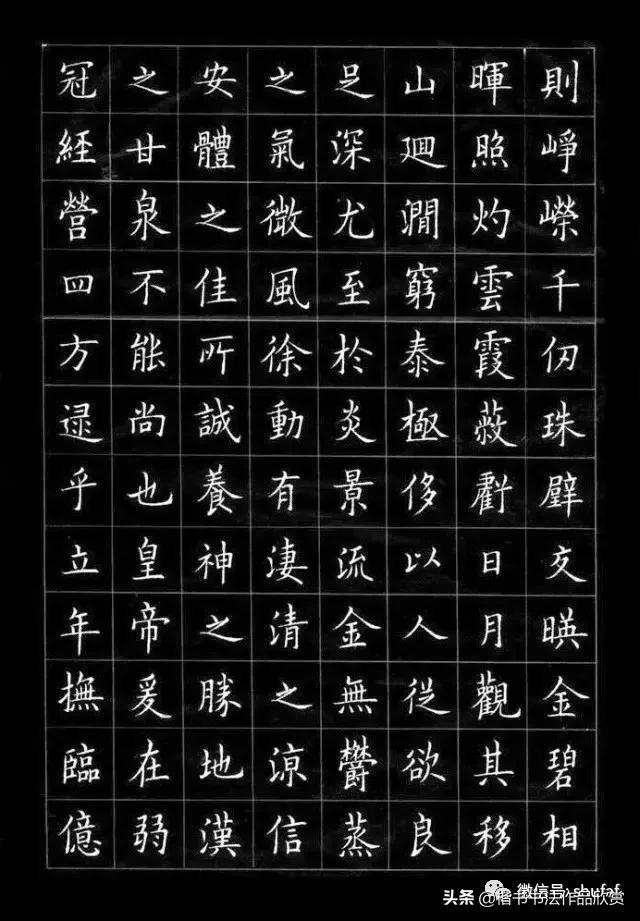 則崢嶸千仞珠壁交暎金碧相
暉照灼雲霞蔽虧日月觀其移
山廻澗窮泰極侈以人從欲良
足深尤至於炎景流金無欝蒸
之氣微風徐動有淒清之涼信
安體之佳所誠養神之勝地漢
之甘泉不能尚也皇帝爰在弱
冠經營四方逯乎立年撫臨億
头条 @楷书书法作品欣赏
微信号: shufaf